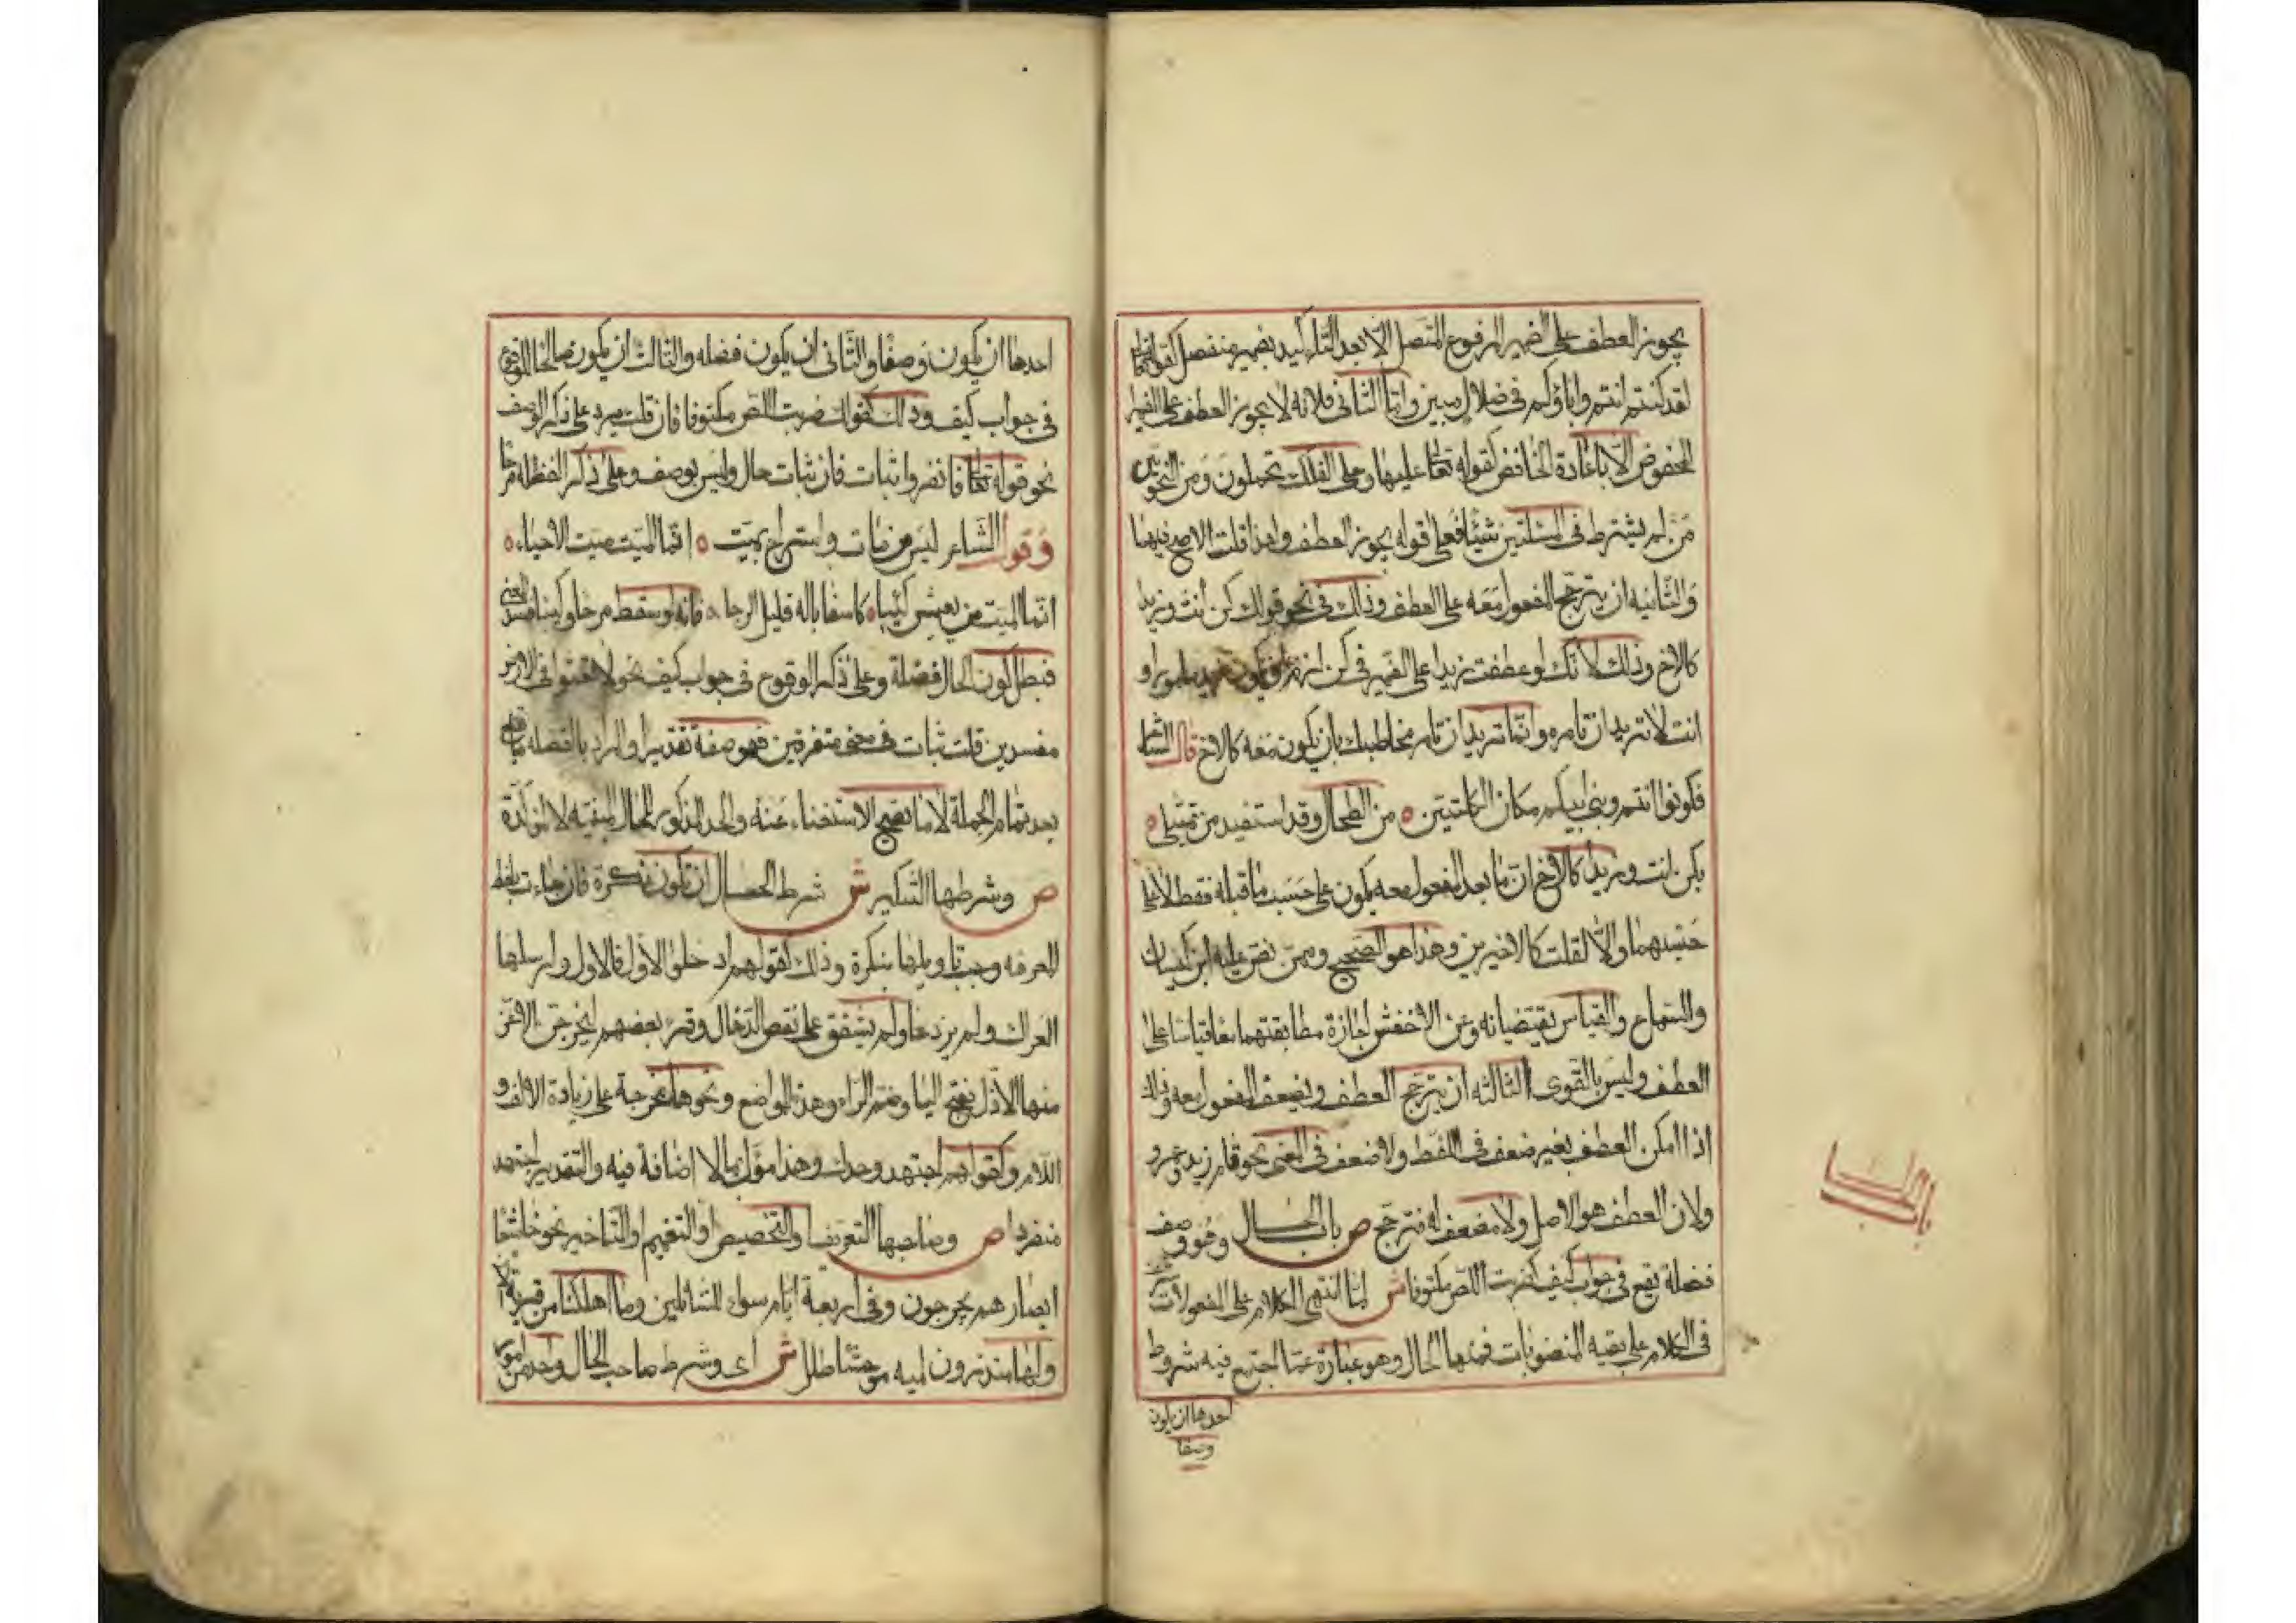 يجوز العطف على الضمير المرفوع المتصل الا بعد التاكيد بضمير منفصل كقوله تعالى
لقد كنتم انتم واباؤكم في ضلال مبين واما الثاني فلانه لا يجوز العطف على الضمير
المخفوض الا باعادة الخافض كقوله تعالى عليها وعلى الفلك تحملون ومن النحويين
من لم يشترط في المسئلتين شيئا فعلى قوله يجوز العطف ولهذا قلت الاصح فيهما
والثانيه ان يترجح المفعول معه على العطف وذلك في نحو قولك كن انت وزيدا
كالاخ وذلك لانك لو عطفت زيدا على الضمير في كن لزم ان يكون زيد مامورا و
انت لا تريد ان تامره وانما تريد ان تامر مخاطبك بان يكون معه كالاخ قال الشاعر
فكونوا انتم وبني ابيكم مكان الكليتين ٥ من الطحال وقد استفيد من تمثيلي ٥
بكن انت وزيدا كالاخ ان ما بعد المفعول معه يكون على حسب ما قبله فقط لا على
حسبهما والا لقلت كالاخوين وهذا هو الصحيح وممن نص عليه ابن كيسان
والسماع والقياس يقتضيانه وعن الاخفش اجازة مطابقتهما معا قياسا على
العطف وليس بالقوى الثالثه ان يترجح العطف ويضعف المفعول معه وذلك
اذا امكن العطف بغير ضعف في اللفظ ولا ضعف في المعنى نحو قام زيد وعمرو
ولان العطف هو الاصل ولا مضعف له فترجح ص باب الحال وهو وصف
فضلة تقع في جواب كيف كضربت اللص مكتوفا ش لما انتهى الكلام على المفعولات
في الكلام على بقيه المنصوبات فمنها الحال وهو عبارة عما اجتمع فيه شروط
احدها ان يكون
وصفا
باب
احدها ان يكون وصفا والثاني ان يكون فضله والثالث ان يكون صالحا للوقوع
في جواب كيف وذلك كقولك ضربت اللص مكتوفا فان قلت يرد على ذكر الوصف
نحو قوله تعالى فانفروا ثبات فان ثبات حال وليس بوصف وعلى ذكر الفضله مرحا
وقول الشاعر ليس من مات واستراح بميت ٥ انما الميت ميت الاحياء ٥
انما الميت من يعيش كئيبا ٥ كاسفا باله قليل الرجا ٥ فانه لو سقط مرحا وكئيبا فسد المعنى
فبطل كون الحال فضلة وعلى ذكر الوقوع في جواب كيف نحو لا تعثوا في الارض
مفسدين قلت ثبات في معنى متفرقين فهو صفة تقديرا والمراد بالفضله ما يقع
بعد تمام الجملة لا ما يصح الاستغناء عنه والحد المذكور للحال المبنيه لا المؤكدة
ص وشرطها التنكير ش شرط الحال ان تكون نكرة فان جاءت بلفظ
المعرفه وجب تاويلها بنكرة وذلك كقولهم ادخلوا الاول فالاول وارسلها
العراك ولم يزدها ولم يشفق على نغص الدخال وقرئ بعضهم ليخرجن الاعز
منها الاذل بفتح اليا وضم الراء وهذه المواضع ونحوها مخرجة على زيادة الالف و
اللام وكقولهم اجتهد وحدك وهذا مؤول بما لا اضافة فيه والتقدير اجتهد
منفردا ص وصاحبها التعريف او التخصيص او التعميم او التاخير نحو خاشعا
ابصارهم يخرجون وفي اربعة ايام سواء للسائلين وما اهلكنا من قرية الا
ولها منذرون لميه موحشا طلل ش اى وشرط صاحب الحال واحد من امور